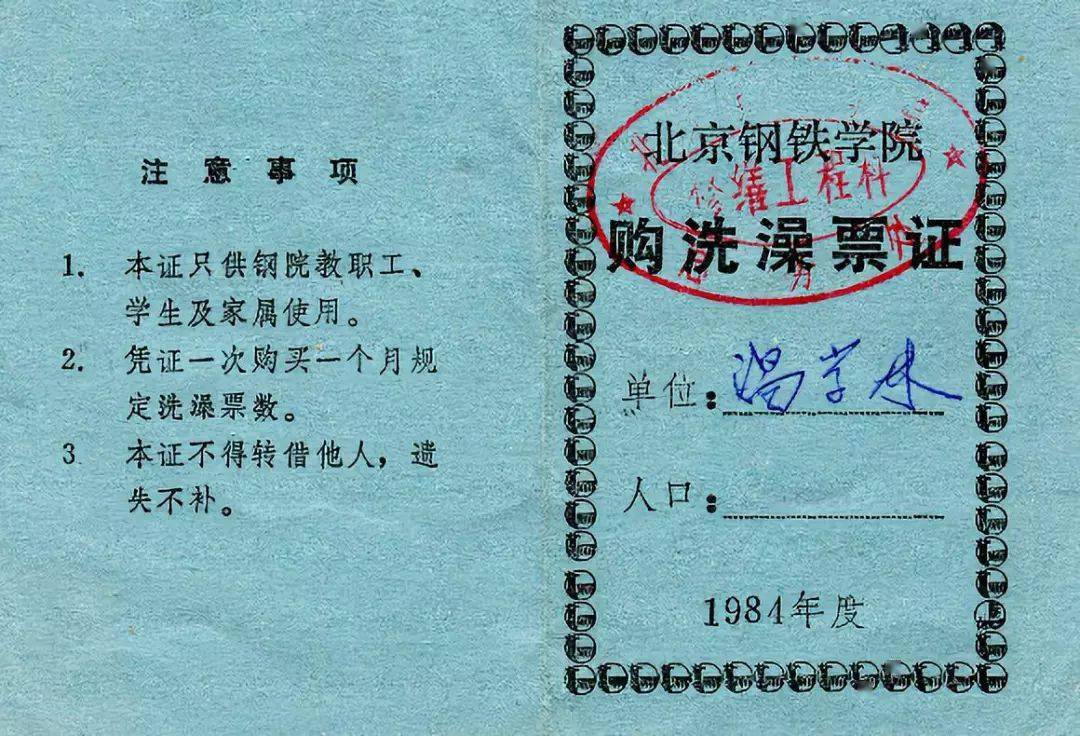 注意事项
1. 本证只供钢院教职工、
学生及家属使用。
2. 凭证一次购买一个月规
定洗澡票数。
3 本证不得转借他人，遗
失不补。
北京钢铁学院
修缮工程科
购洗澡票证
单位：
学林
人口：
1984年度